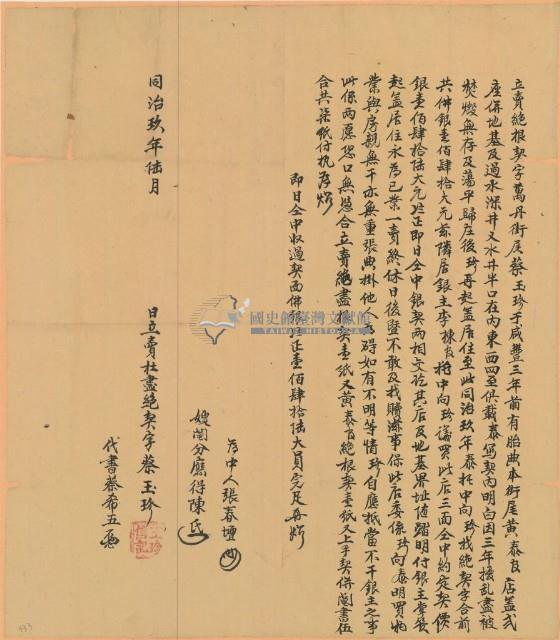 立賣絕根契字萬丹街尾蔡玉珍于咸豐三年前有胎典本街尾黃泰官店蓋弍
座併地基及過水深井又水井半口在內東西四至俱載泰寫契內明白因三年擾乱盡被
焚燬無存及蕩平歸庄後珍再起盖居住至此同治玖年泰托中向珍找絕契字合前
共佛銀壹佰肆拾大元茲隣居銀主李棟官將中向珍議買此店三面仝中約定契價
銀壹佰肆拾陸大元正即日仝中銀契兩相交訖其店及地基界址隨踏明付銀主掌管
起盖居住永為己業一賣終休日後暨不敢言及找贖滋事保此店委係珍向泰明買物
業與房親無干亦無重張典掛他人為碍如有不明等情珍自應抵當不干銀主之事
此係兩愿恐口無憑合立賣絕盡根契壹紙又黃泰官絕根契壹紙又上手契併鬮書伍
合共柒紙付执為炤
即日仝中收過契面佛銀 正壹佰肆拾陸大員完足再炤
為中人張春
嫂鬮分應得陳氏
同治玖年陸月 日立賣杜盡絕契字蔡玉珍
代書蔡希五
國史館臺灣文獻館
TAIWAN HISTORICA
933